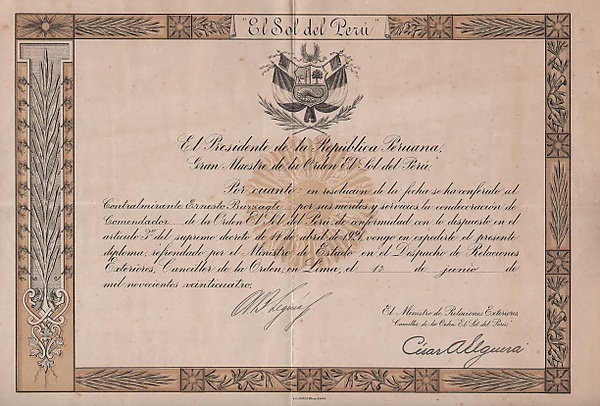 "El Sol del Perú"
El Presidente de la República Peruana,
Gran Maestro de la Orden "El Sol del Perú"
Por cuanto en resolución de la fecha se ha conferido al
Contralmirante Ernesto por sus méritos y servicios, la condecoración de
Comendador de la Orden El Sol del Perú, de conformidad con lo dispuesto en el
artículo 5º del supremo decreto de 14 de abril de 1921, vengo en expedirle el presente
diploma, refrendado por el Ministro de Estado en el Despacho de Relaciones
Exteriores, Canciller de la Orden, en Lima, el 12 de junio de
mil novecientos veinticuatro.
El Ministro de Relaciones Exteriores
Canciller de la Orden El Sol del Perú